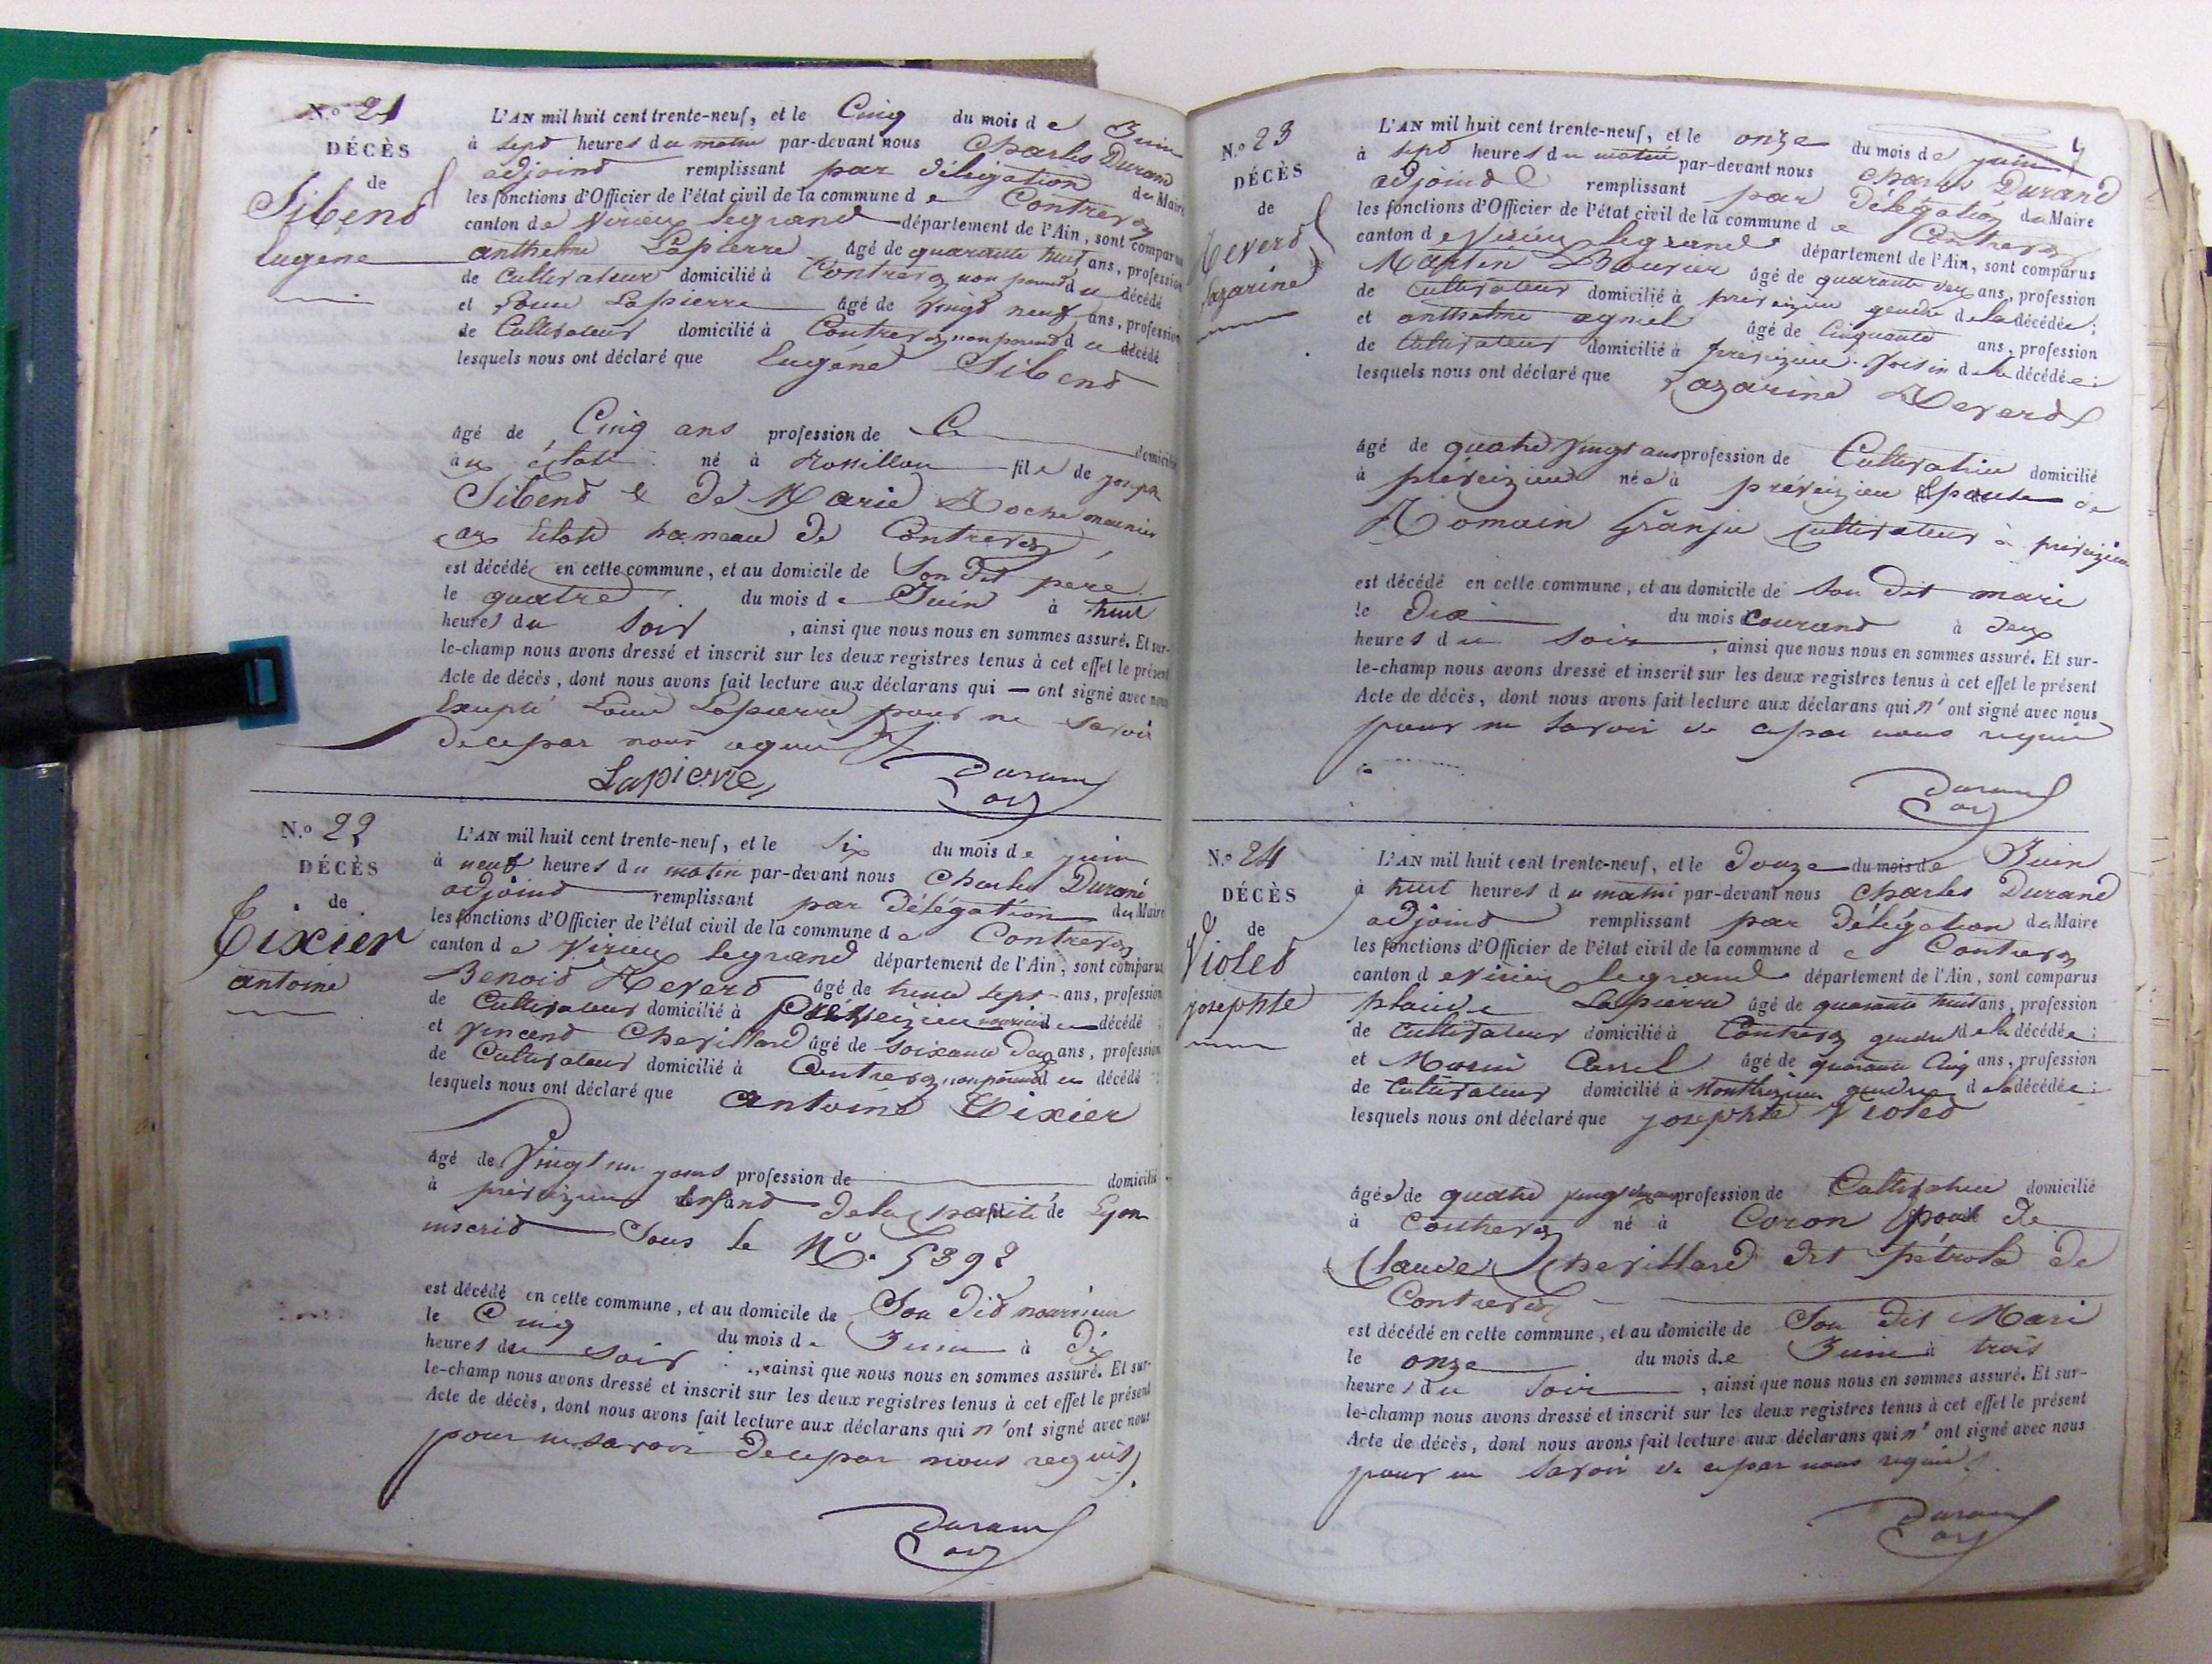 N.o 21
DÉCÈS
de
Sibend
Eugéne
L'AN mil huit cent trente-neuf, et le Cinq du mois de Juin
à sept heures du matin par-devant nous Charles Durand
adjoind remplissant par délégation du Maire
les fonctions d'Officier de l'état civil de la commune de Contrevoz
canton de Virieu legrand département de l'Ain, sont comparus
anthelme Lapierre âgé de quarante huit ans, profession
de Cultivateur domicilié à Contrevoz non parend du décédé
et Louis Lapierre âgé de vingt neuf ans, profession
de Cultivateur domicilié à Contrevoz non parend du décédé
lesquels nous ont déclaré que Eugéne Sibend
âgé de Cinq ans profession de domicilié
né à Rossillon fils de joseph
Sibend & de Marie Roche meunier
hameau de Contrevoz
est décédé en cette commune, et au domicile de Son dit pere
le quatre du mois de Juin à huit
heures du Soir, ainsi que nous nous en sommes assuré. Et sur-
le-champ nous avons dressé et inscrit sur les deux registres tenus à cet effet le présent
Acte de décès, dont nous avons fait lecture aux déclarans qui — ont signé avec nous
Excepté Louis Lapierre pour ne Savoir
de ce par nous requis
Lapierre Durand
adj
N.o 22
DÉCÈS
de
Tixier
antoine
L'AN mil huit cent trente-neuf, et le Six du mois de juin
à neuf heures du matin par-devant nous Charles Durand
adjoind remplissant par délégation du Maire
les fonctions d'Officier de l'état civil de la commune de Contrevoz
canton de Virieu legrand département de l'Ain, sont comparus
Benoid Reverd âgé de trente sept ans, profession
de Cultivateur domicilié à Préveizieu nourricié du décédé
et Vincend Chevillard âgé de soixante deux ans, profession
de Cultivateur domicilié à Contrevoz non parend du décédé
lesquels nous ont déclaré que antoine Tixier
âgé de Vingt un jours profession de domicilié
à préveizieu Enfand de la charité de Lyon
inscrid Sous le No. 5392
est décédé en cette commune, et au domicile de Son did nourricier
le Cinq du mois de Juin à dix
heures du Soir, ainsi que nous nous en sommes assuré. Et sur-
le-champ nous avons dressé et inscrit sur les deux registres tenus à cet effet le présent
Acte de décès, dont nous avons fait lecture aux déclarans qui n'ont signé avec nous
pour ne savoir de ce par nous requis.
Durand
adj
N.o 23
DÉCÈS
de
Reverd
Lazarine
L'AN mil huit cent trente-neuf, et le onze du mois de juin
à sept heures du matin par-devant nous Charles Durand
adjoind remplissant par délégation du Maire
les fonctions d'Officier de l'état civil de la commune de Contrevoz
canton de Virieu legrand département de l'Ain, sont comparus
Martin Bouvier âgé de quarante deux ans, profession
de Cultivateur domicilié à préveizieu gendre de la décédée;
et anthelme agniel âgé de Cinquante ans, profession
de Cultivateur domicilié à preveizieu Voisin de la décédée;
lesquels nous ont déclaré que Lazarine Reverd
âgé de quatre Vingt ans profession de Cultivatrice domicilié
à préveizieu née à préveizieu Epouse de
Romain Granju Cultivateur à préveizieu
est décédé en cette commune, et au domicile de Son dit mari
le Dix du mois Courand à deux
heures du Soir, ainsi que nous nous en sommes assuré. Et sur-
le-champ nous avons dressé et inscrit sur les deux registres tenus à cet effet le présent
Acte de décès, dont nous avons fait lecture aux déclarans qui n'ont signé avec nous
pour ne Savoir de ce par nous requis
Durand
adj
N.o 24
DÉCÈS
de
Violed
josephte
L'AN mil huit cent trente-neuf, et le Douze du mois de Juin
à huit heures du matin par-devant nous Charles Durand
adjoind remplissant par délégation du Maire
les fonctions d'Officier de l'état civil de la commune de Contrevoz
canton de Virieu legrand département de l'Ain, sont comparus
Lapierre âgé de quarante huit ans, profession
de Cultivateur domicilié à Contrevoz gendre de la décédée;
et âgé de quarante Cinq ans, profession
de Cultivateur domicilié à gendre de la décédée;
lesquels nous ont déclaré que josephte Violed
âgée de quatre vingt profession de Cultivatrice domicilié
à Contrevoz né à Coron Epouse de
Claude Chevillard dit pétrola de
Contrevoz
est décédé en cette commune, et au domicile de Son dit Mari
le onze du mois de Juin à trois
heures du Soir, ainsi que nous nous en sommes assuré. Et sur-
le-champ nous avons dressé et inscrit sur les deux registres tenus à cet effet le présent
Acte de décès, dont nous avons fait lecture aux déclarans qui n'ont signé avec nous
pour ne Savoir de ce par nous requis.
Durand
adj